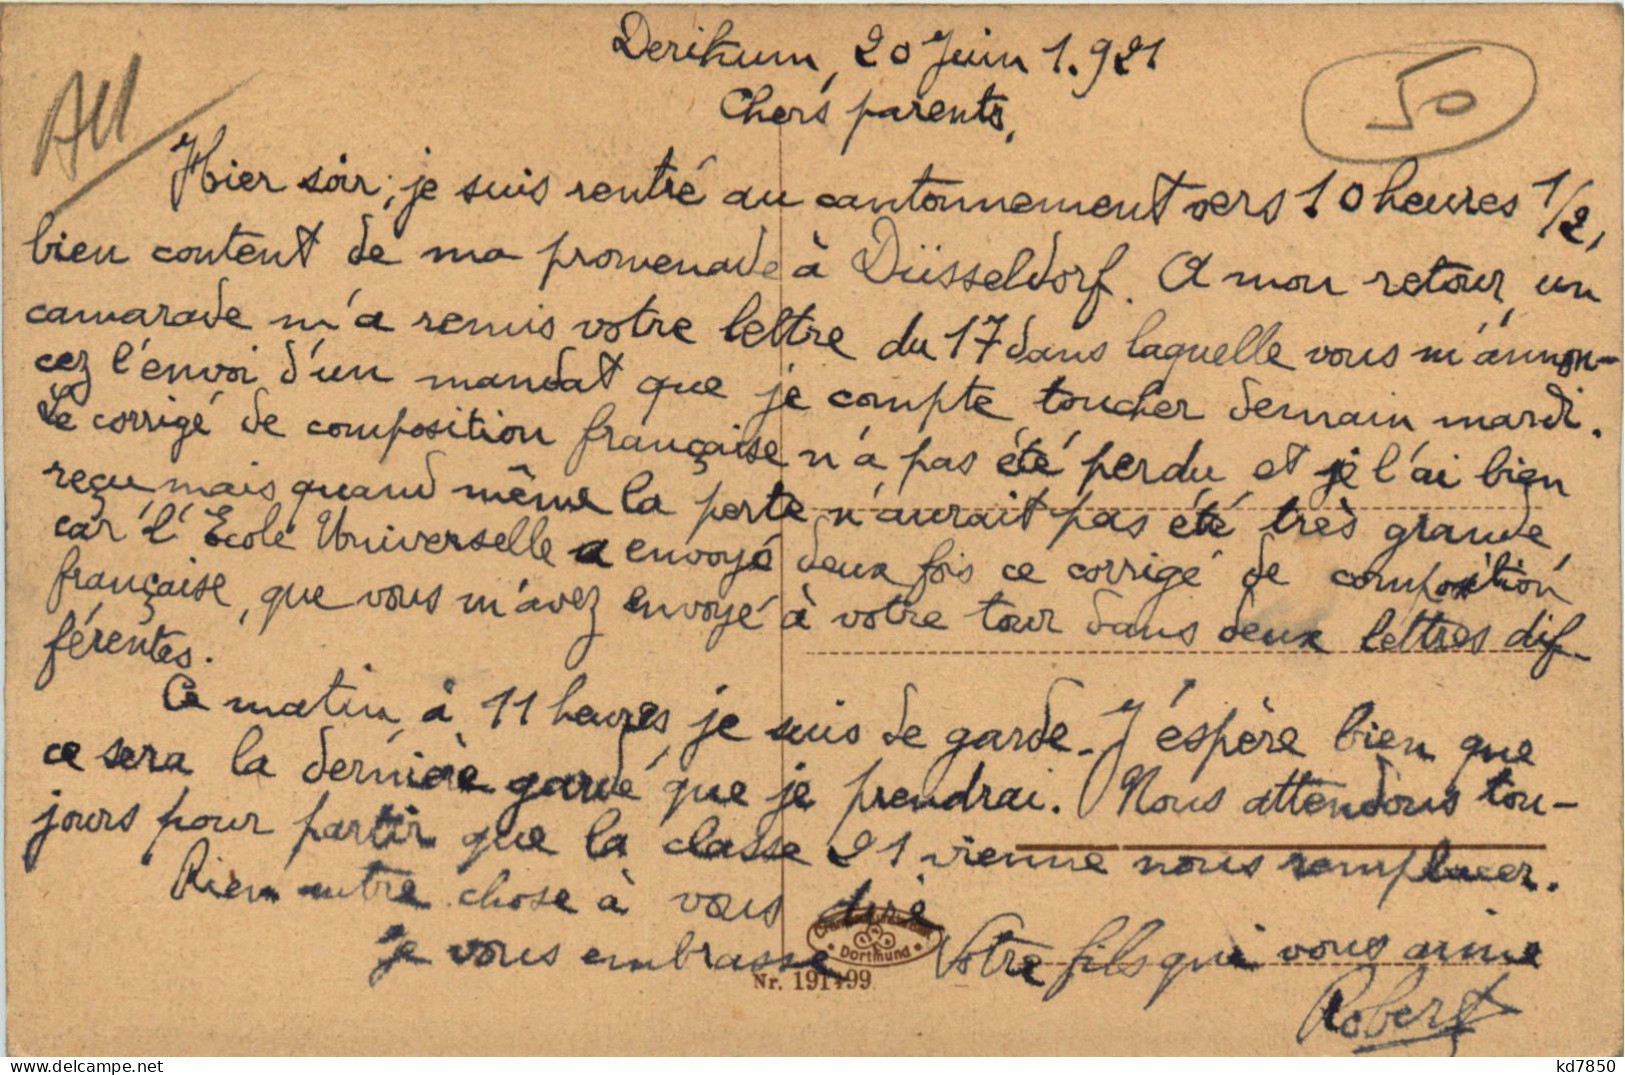 All
50
Derikum, 20 Juin 1.921
Chers parents,
Hier soir, je suis rentré au cantonnement vers 10 heures 1/2,
bien content de ma promenade à Düsseldorf. A mon retour, un
camarade m'a remis votre lettre du 17 dans laquelle vous m'annon-
cez l'envoi d'un mandat que je compte toucher demain mardi.
Le corrigé de composition française n'a pas été perdu et je l'ai bien
reçu mais quand même la perte n'aurait pas été très grande,
car l'École Universelle a envoyé deux fois ce corrigé de composition
française, que vous m'avez envoyé à votre tour dans deux lettres dif-
férentes.
Ce matin, à 11 heures, je suis de garde. J'espère bien que
ce sera la dernière garde que je prendrai. Nous attendons tou-
jours pour partir que la classe 21 vienne nous remplacer.
Rien autre chose à vous dire
Je vous embrasse Votre fils qui vous aime
Robert
Dortmund
Nr. 191499
kd7850